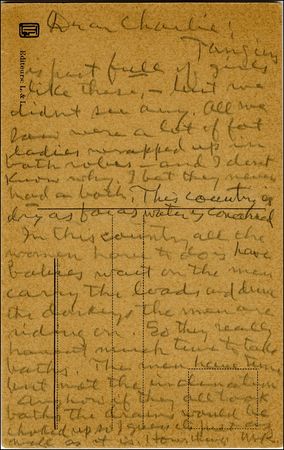 Dear Charlie;
Tangiers
is just full of girls
like these, – but we
didn't see any. All we
saw were a lot of fat
ladies wrapped up in
bath robes – and I don't
know why. I bet they never
had a bath. This country is
dry as far as water is concerned
In this country all the
women have to do is have
babies wait on the men
carry the loads and drive
the donkeys the men are
riding on So they really
haven't much time to take
baths. The men have time
but not the inclination
any how if they all took
bath the drains would be
choked up so I guess its just as
well as it is.
Editeurs L. & L.